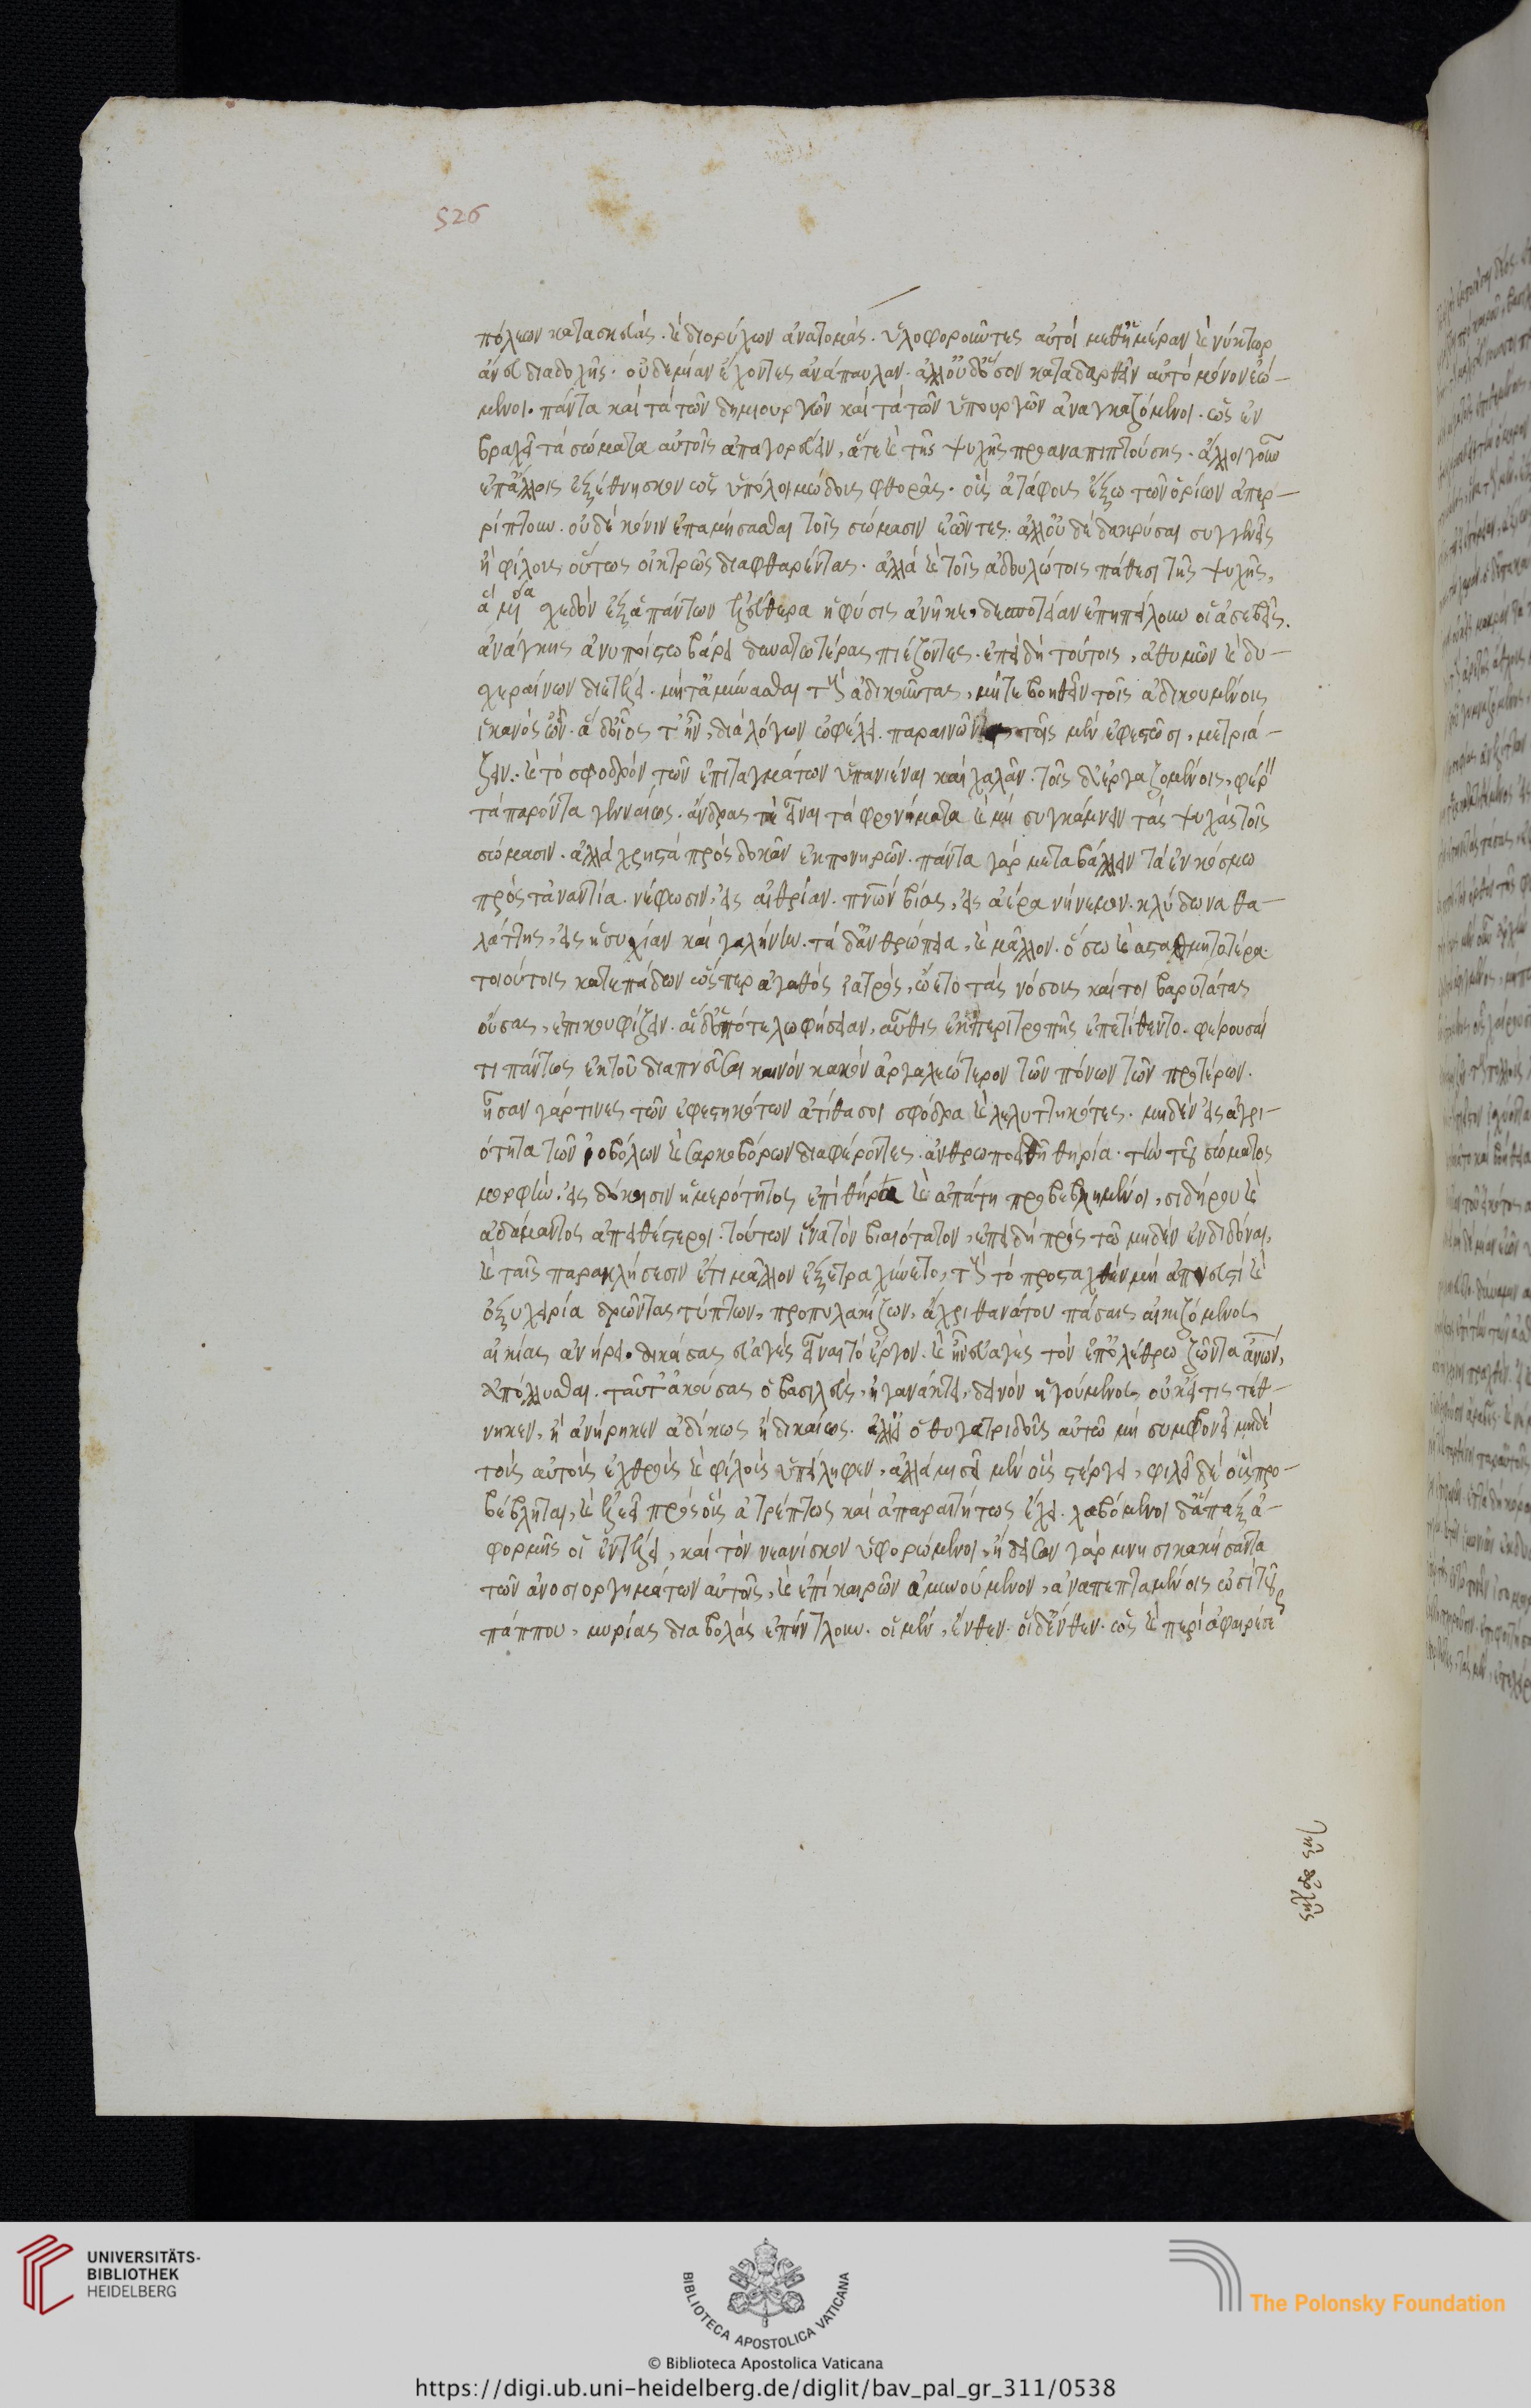 526
πόλεων κατασκευάς. καὶ διορύχων ἀνατομάς. ὑλοφοροῦντες αὐτοὶ μεθ' ἡμέραν καὶ νύκτωρ
ἄνευ διαδοχῆς. οὐδεμίαν ἔχοντες ἀνάπαυλαν. ἀλλ' οὐδ' ὅσον καταδαρθεῖν αὐτὸ μόνον ἐώ-
μενοι. πάντα καὶ τὰ τῶν δημιουργῶν καὶ τὰ τῶν ὑπουργῶν ἀναγκαζόμενοι. ὡς ἐν
βραχεῖ τὰ σώματα αὐτοῖς ἀπαγορεύειν, ἅτε καὶ τῆς ψυχῆς προαναπιπτούσης. ἄλλοι γοῦν
ἐπ' ἄλλοις ἐξέθνησκον ὡς ὑπὸ λοιμώδους φθορᾶς. οὓς ἀτάφους ἔξω τῶν ὁρίων ἀπερ-
ρίπτουν. οὐδὲ κόνιν ἐπαμήσασθαι τοῖς σώμασιν ἐῶντες. ἀλλ' οὐδὲ δακρύσαι συγγενεῖς
ἢ φίλους οὕτως οἰκτρῶς διαφθαρέντας. ἀλλὰ καὶ τοῖς ἀδουλώτοις πάθεσι τῆς ψυχῆς,
ἃ μόνα σχεδὸν ἐξ ἁπάντων ἐλεύθερα ἡ φύσις ἀνῆκε, δεσποτείαν ἐπηπείλουν οἱ ἀσεβεῖς.
ἀνάγκης ἀνυποίστῳ βάρει δυνατωτέρας πιέζοντες. ἐπειδὴ τούτοις, ἀθυμῶν καὶ δυ-
χεραίνων διετέλει. μήτ' ἀμύνασθαι τοὺς ἀδικοῦντας, μήτε βοηθεῖν τοῖς ἀδικουμένοις
ἱκανὸς ὤν. ἃ δ' οἷός τ' ἦν, διὰ λόγων ὠφέλει. παραινῶν τοῖς μὲν ἐφεστῶσι, μετριά-
ζειν. καὶ τὸ σφοδρὸν τῶν ἐπιταγμάτων ὑπανιέναι καὶ χαλᾶν. τοῖς δ' ἐργαζομένοις, φέρειν
τὰ παρόντα γενναίως. ἄνδρας τε εἶναι τὰ φρονήματα καὶ μὴ συγκάμνειν τὰς ψυχὰς τοῖς
σώμασιν. ἀλλὰ χρηστὰ προσδοκᾶν ἐκ πονηρῶν. πάντα γὰρ μεταβάλλειν τὰ ἐν κόσμῳ
πρὸς τἀναντία. νέφωσιν, εἰς αἰθρίαν. πνευμάτων βίας, εἰς ἀέρα νήνεμον. κλύδωνα θα-
λάττης, εἰς ἡσυχίαν καὶ γαλήνην. τὰ δ' ἀνθρώπεια, καὶ μᾶλλον. ὅσῳ καὶ ἀσταθμητότερα.
τοιούτοις κατεπᾴδων ὥσπερ ἀγαθὸς ἰατρὸς, ᾤετο τὰς νόσους καίτοι βαρυτάτας
οὔσας, ἐπικουφίζειν. αἱ δ' ὁπότε λωφήσειαν, αὖθις ἐκ περιτροπῆς ἐπετίθεντο. φέρουσαί
τι πάντως ἐκ τοῦ διαπνεῦσαι καινὸν κακὸν ἀργαλεώτερον τῶν πόνων τῶν προτέρων.
ἦσαν γάρ τινες τῶν ἐφεστηκότων ἀτίθασοι σφόδρα καὶ λελυττηκότες. μηδὲν εἰς ἀγρι-
ότητα τῶν ἰοβόλων καὶ σαρκοβόρων διαφέροντες. ἀνθρωποειδῆ θηρία. τὴν τοῦ σώματος
μορφὴν. εἰς δόκησιν ἡμερότητος ἐπὶ θήρᾳ καὶ ἀπάτῃ προβεβλημένοι, σιδήρου καὶ
ἀδάμαντος ἀπειθέστεροι. τούτων ἕνα τὸν βιαιότατον, ἐπειδὴ πρὸς τῷ μηδὲν ἐνδιδόναι,
καὶ ταῖς παρακλήσεσιν ἔτι μᾶλλον ἐξετραχύνετο, τοὺς τὸ προσταχθὲν μὴ ἀπνευστὶ καὶ
ὀξυχειρίᾳ δρῶντας τύπτων, προπηλακίζων, ἄχρι θανάτου πάσας αἰκιζόμενος
αἰκίας ἀνῃρεῖ. δικάσας εὐαγὲς εἶναι τὸ ἔργον. καὶ ἦν εὐαγὲς τὸν ἐπ' ὀλέθρῳ ζῶντα ἀνθρώπων,
ἀπόλλυσθαι. ταῦτ' ἀκούσας ὁ βασιλεὺς, ἠγανάκτει, δεινὸν ἡγούμενος οὐκ εἴ τις τέθ-
νηκεν, ἢ ἀνῄρηκεν ἀδίκως ἢ δικαίως. ἀλλ' εἰ ὁ θυγατριδοῦς αὐτῷ μὴ συμφρονεῖ μηδὲ
τοὺς αὐτοὺς ἐχθροὺς καὶ φίλους ὑπείληφεν, ἀλλὰ μισεῖ μὲν οὓς στέργει, φιλεῖ δὲ οὓς προ-
βέβληται, καὶ ἐλεεῖ πρὸς οὓς ἀτρέπτως καὶ ἀπαραιτήτως ἔχει. λαβόμενοι δ' ἅπαξ ἀ-
φορμῆς οἱ ἐν τέλει, καὶ τὸν νεανίσκον ὑφορώμενοι, ᾔδεσαν γὰρ μνησικακήσαντα
τῶν ἀνοσιουργημάτων αὐτοῖς, καὶ ἐπὶ καιρῶν ἀμυνούμενον, ἀναπεπταμένοις ὠσὶ τοῦ
πάππου, μυρίας διαβολὰς ἐπήντλουν. οἱ μὲν, ἔνθεν. οἱ δ' ἔνθεν. ὡς καὶ περὶ ἀφαιρέσεως
τῆς ἀρχῆς
UNIVERSITÄTS-
BIBLIOTHEK
HEIDELBERG
BIBLIOTECA APOSTOLICA VATICANA
The Polonsky Foundation
© Biblioteca Apostolica Vaticana
https://digi.ub.uni-heidelberg.de/diglit/bav_pal_gr_311/0538